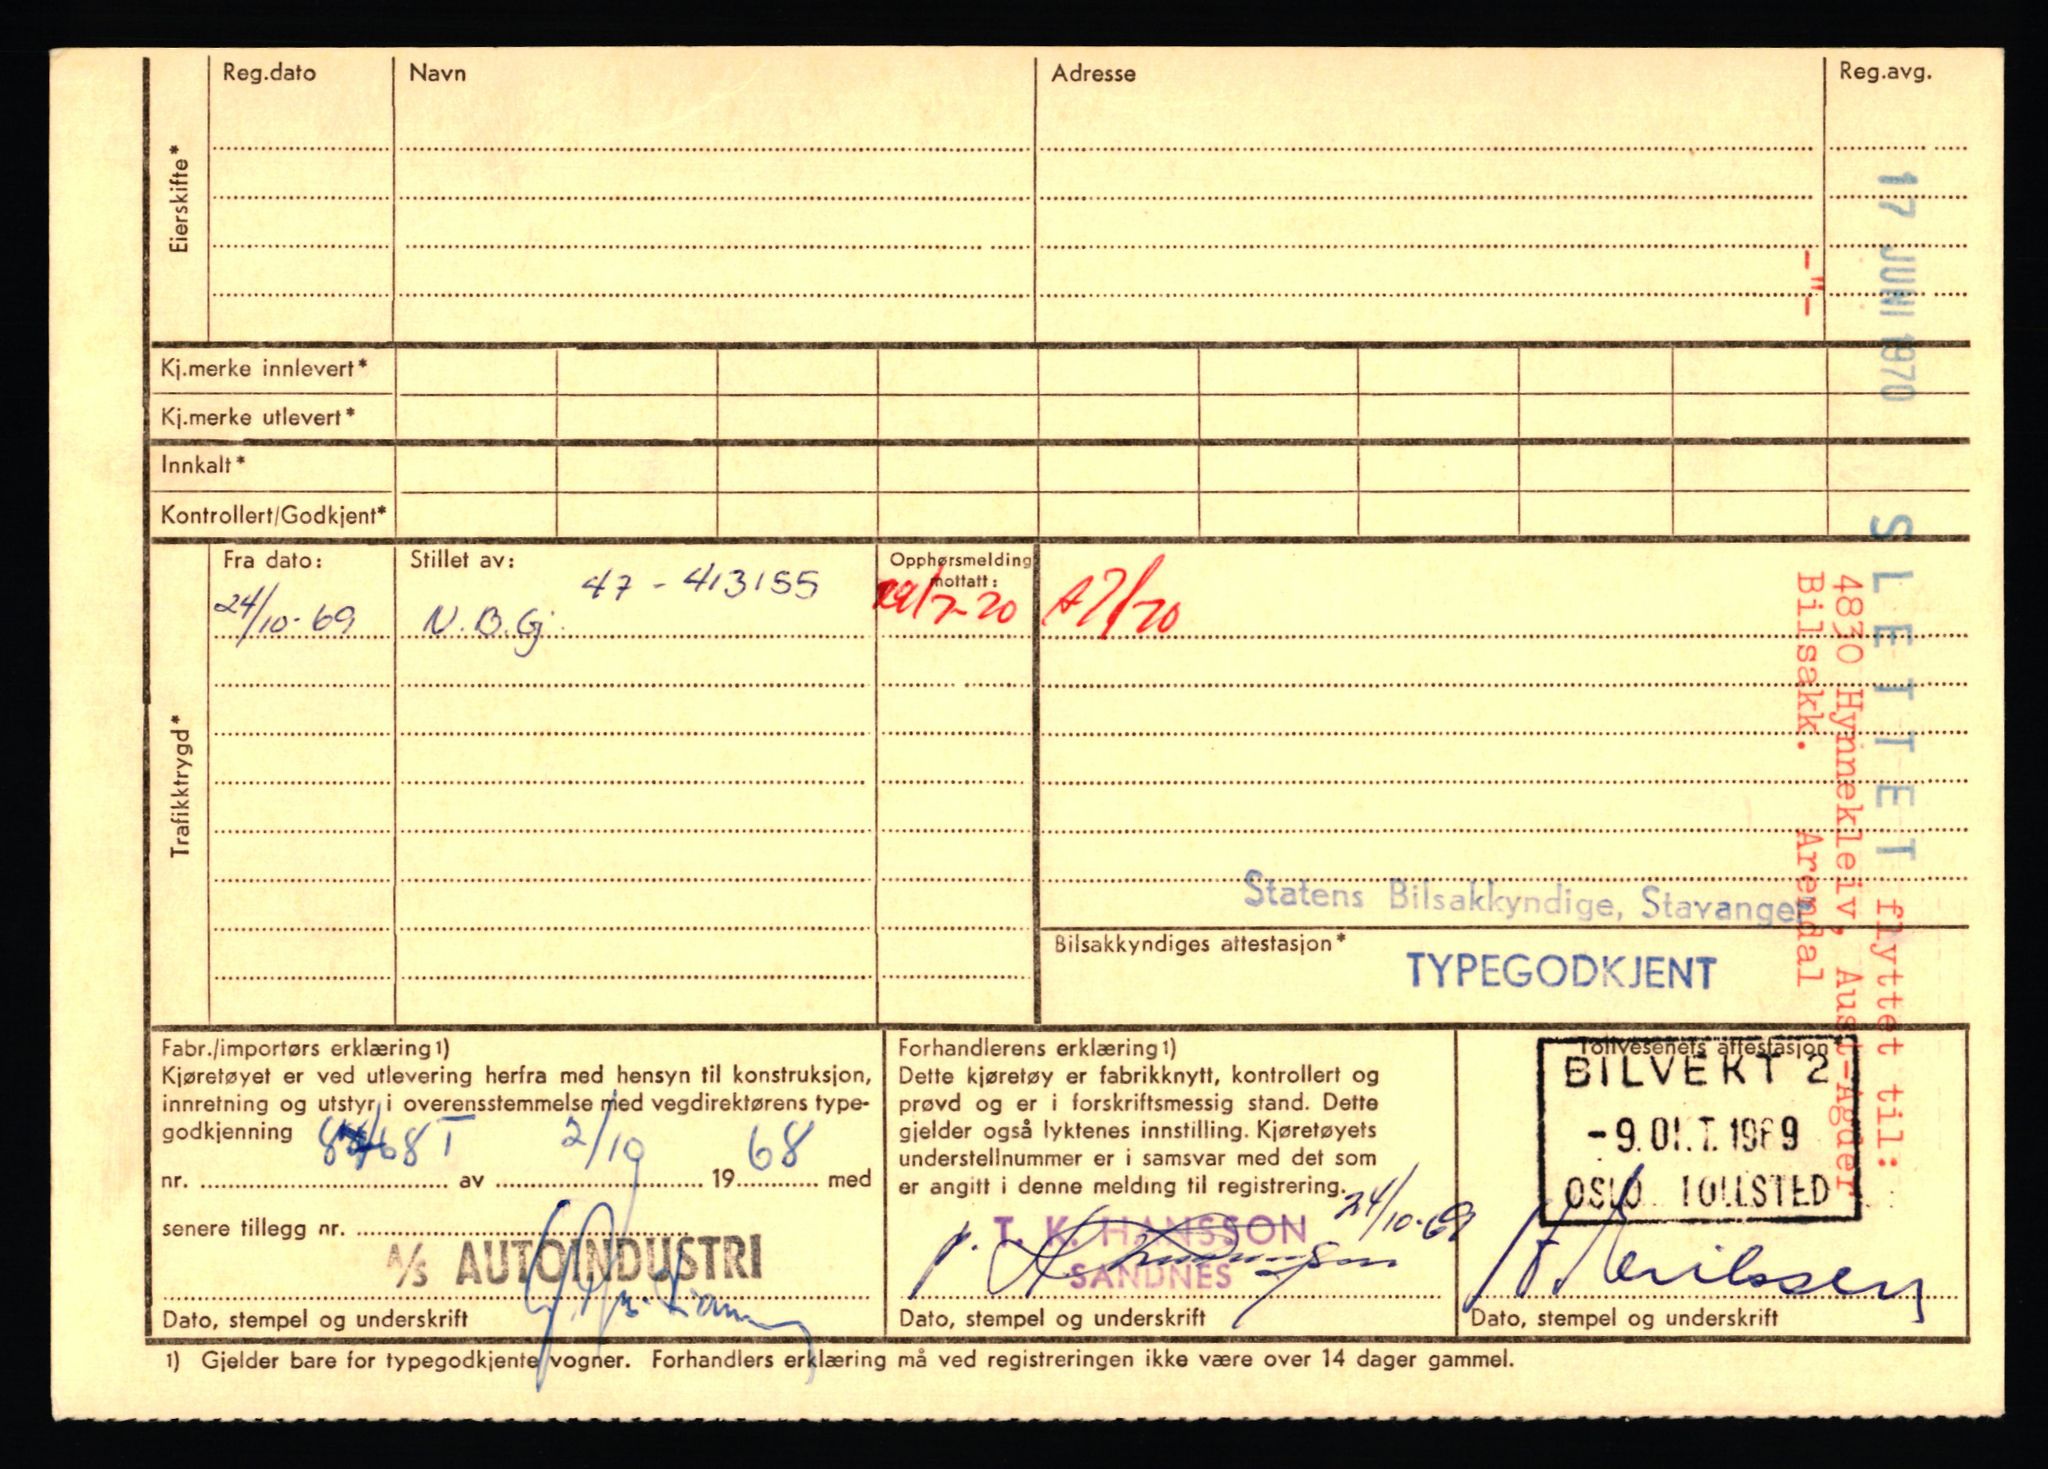 Reg.dato Navn Adresse Reg.avg.
Eierskifte*
17 JUNI 1970
-"-
Kj.merke innlevert*
Kj.merke utlevert*
Innkalt*
Kontrollert/Godkjent*
SLETTET
flyttet til:
4830 Hynnekleiv, Aust-Agder
Bilsakk. Arendal
Trafikktrygd*
Fra dato: Stillet av: Opphørsmelding mottatt:
24/10-69 N.B.Gj. 47-413155
Statens Bilsakkyndige, Stavanger
Bilsakkyndiges attestasjon*
TYPEGODKJENT
Fabr./importørs erklæring1)
Kjøretøyet er ved utlevering herfra med hensyn til konstruksjon,
innretning og utstyr i overensstemmelse med vegdirektørens type-
godkjenning
nr. av 2/10 1968 med
senere tillegg nr.
A/S AUTOINDUSTRI
Dato, stempel og underskrift
Forhandlerens erklæring1)
Dette kjøretøy er fabrikknytt, kontrollert og
prøvd og er i forskriftsmessig stand. Dette
gjelder også lyktenes innstilling. Kjøretøyets
understellnummer er i samsvar med det som
er angitt i denne melding til registrering.
24/10-69
T. K. HANSSON
SANDNES
Dato, stempel og underskrift
Tollvesenets attestasjon*
BILVEKT 2
-9.OKT.1969
OSLO TOLLSTED
Dato, stempel og underskrift
1) Gjelder bare for typegodkjente vogner. Forhandlers erklæring må ved registreringen ikke være over 14 dager gammel.